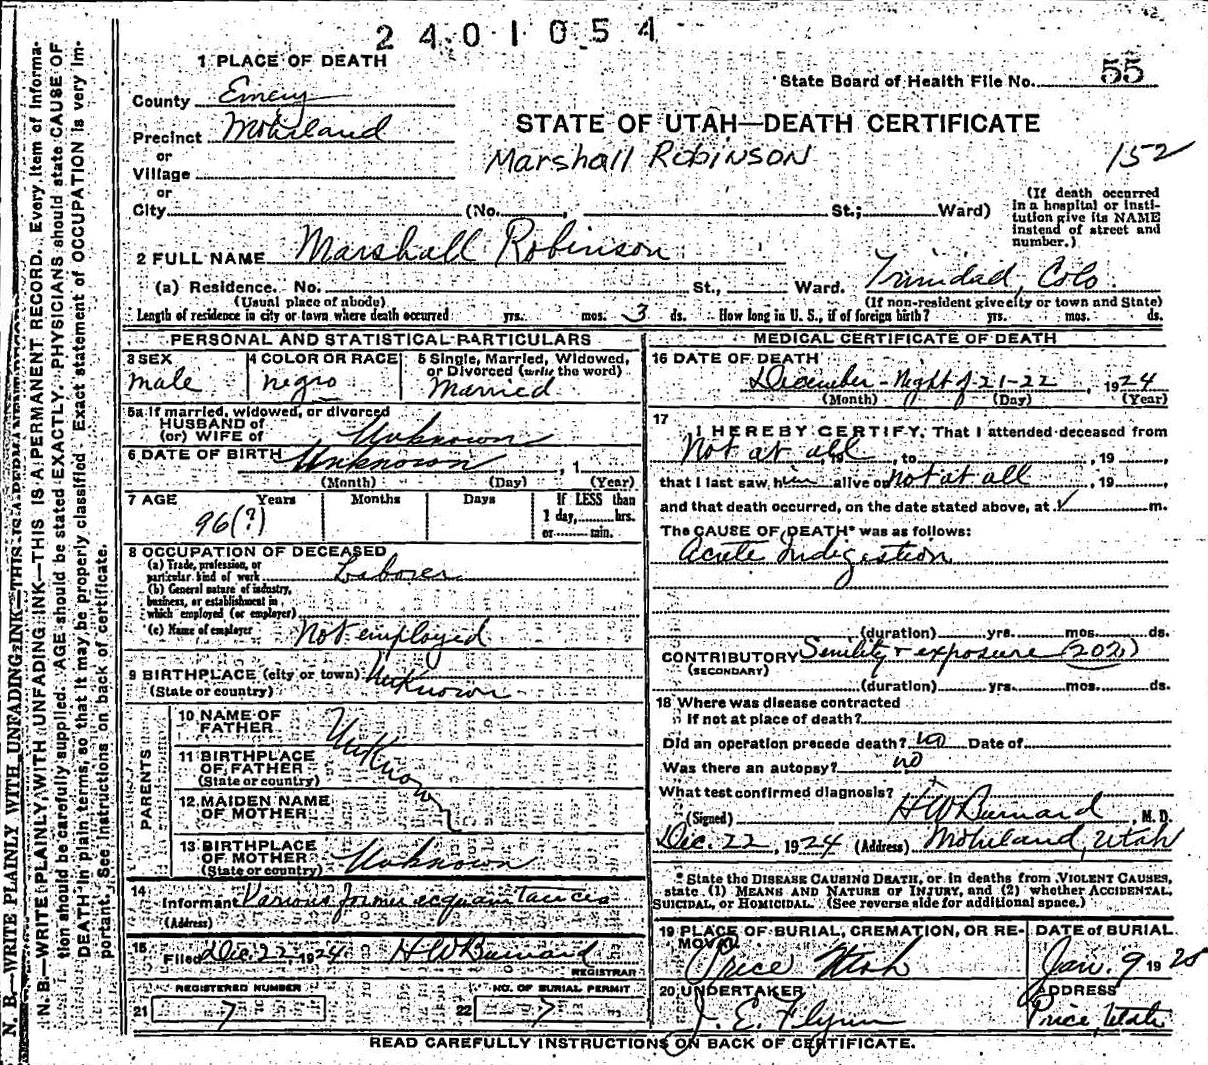 2 4 0 1 0 5 4
1 PLACE OF DEATH
State Board of Health File No. 55
County Emery
Precinct Mohrland
STATE OF UTAH—DEATH CERTIFICATE
or
Marshall Robinson
152
Village
or
City (No. , St.; Ward)
(If death occurred in a hospital or institution give its NAME instead of street and number.)
2 FULL NAME Marshall Robinson
(a) Residence. No. St., Ward. Trinidad, Colo
(Usual place of abode) (If non-resident give city or town and State)
Length of residence in city or town where death occurred yrs. mos. 3 ds. How long in U. S., if of foreign birth? yrs. mos. ds.
PERSONAL AND STATISTICAL PARTICULARS
3 SEX
male
4 COLOR OR RACE
negro
5 Single, Married, Widowed, or Divorced (write the word)
Married
5a If married, widowed, or divorced
HUSBAND of
(or) WIFE of Unknown
6 DATE OF BIRTH Unknown , 1
(Month) (Day) (Year)
7 AGE Years Months Days
96(?)
If LESS than
1 day, hrs.
or min.
8 OCCUPATION OF DECEASED
(a) Trade, profession, or
particular kind of work Laborer
(b) General nature of industry,
business, or establishment in
which employed (or employer)
(c) Name of employer Not employed
9 BIRTHPLACE (city or town) Unknown
(State or country)
PARENTS
10 NAME OF FATHER Unknown
11 BIRTHPLACE OF FATHER
(State or country)
12 MAIDEN NAME OF MOTHER
13 BIRTHPLACE OF MOTHER Unknown
(State or country)
14
Informant Various former acquaintances
(Address)
15
Filed Dec. 22 1924 H W Burnard
REGISTRAR
REGISTERED NUMBER
21 7
NO. OF BURIAL PERMIT
22 7
MEDICAL CERTIFICATE OF DEATH
16 DATE OF DEATH
December - Night of 21-22, 1924
(Month) (Day) (Year)
17
I HEREBY CERTIFY, That I attended deceased from
Not at all, 19 , to , 19 ,
that I last saw him alive on not at all, 19 ,
and that death occurred, on the date stated above, at ✓ m.
The CAUSE OF DEATH* was as follows:
Acute Indigestion
(duration) yrs. mos. ds.
CONTRIBUTORY Senility + exposure (202)
(SECONDARY)
(duration) yrs. mos. ds.
18 Where was disease contracted
if not at place of death?
Did an operation precede death? no Date of
Was there an autopsy? no
What test confirmed diagnosis?
(Signed) H W Burnard, M. D.
Dec. 22, 1924 (Address) Mohrland, Utah
* State the DISEASE CAUSING DEATH, or in deaths from VIOLENT CAUSES,
state (1) MEANS AND NATURE OF INJURY, and (2) whether ACCIDENTAL,
SUICIDAL, or HOMICIDAL. (See reverse side for additional space.)
19 PLACE OF BURIAL, CREMATION, OR REMOVAL
Price Utah
DATE of BURIAL
Jan. 9 1925
20 UNDERTAKER
J. E. Flynn
ADDRESS
Price, Utah
READ CAREFULLY INSTRUCTIONS ON BACK OF CERTIFICATE.
N. B.—WRITE PLAINLY WITH UNFADING INK—THIS IS A PERMANENT RECORD. Every item of information should be carefully supplied. AGE should be stated EXACTLY. PHYSICIANS should state CAUSE OF DEATH in plain terms, so that it may be properly classified. Exact statement of OCCUPATION is very important. See instructions on back of certificate.
N. B.—WRITE PLAINLY WITH UNFADING INK—THIS IS A PERMANENT RECORD